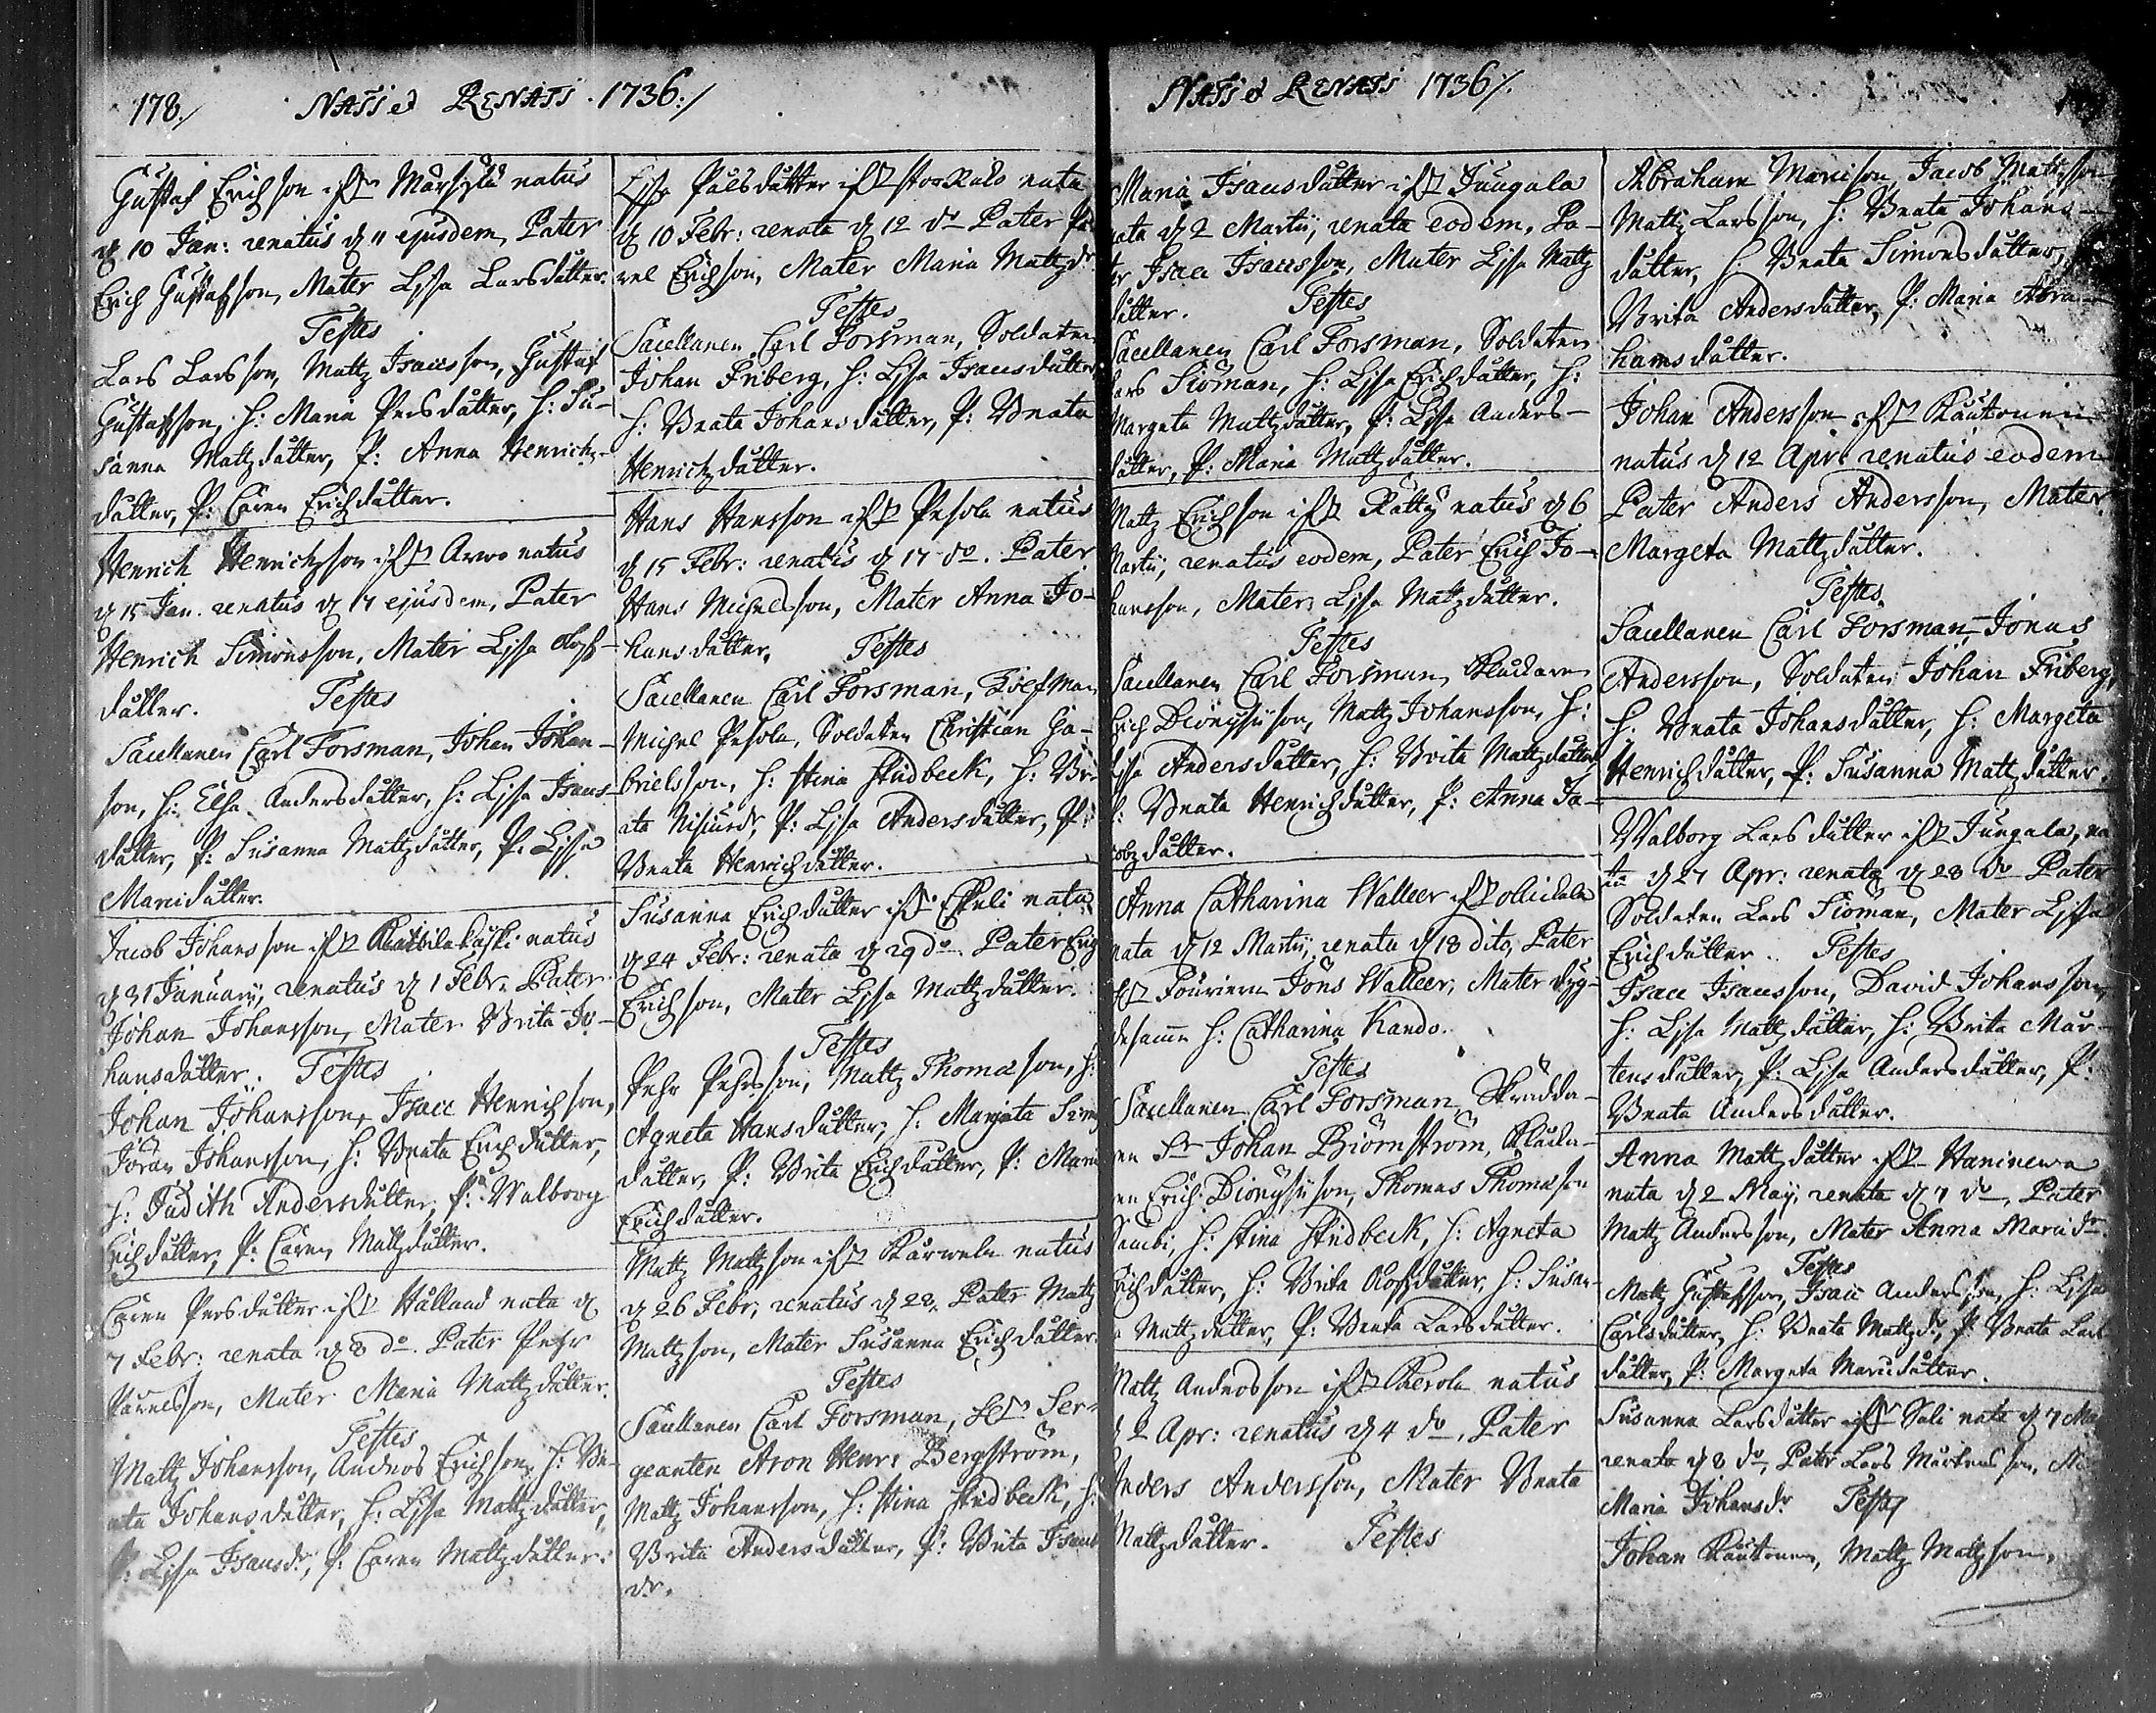 178./ NATI et RENATI 1736:/
Gustaf Erichson ifr: Mårskylä natus
d 10 Jan: renatus d 11 ejusdem, Pater
Erich Gustafsson, Mater Lisa Larsdåtter.
Testes
Lars Larsson, Mattz Isacsson, Gustaf
Gustafsson, h: Maria Persdåtter, h: Su-
sanna Mattzdåtter, P: Anna Henrichz-
dåtter, P: Caren Erichdåtter.
Henrich Henrichsson ifr: Arvo natus
d 15 Jan. renatus d 17 ejusdem, Pater
Henrich Simonsson, Mater Lisa Olofs-
dåtter. Testes
Sacellanen Carl Forsman, Johan Johan-
son, h: Elsa Andersdåtter, h: Lisa Isacs-
dåtter, P: Susanna Mattzdåtter, P: Lisa
Marcidåtter.
Jacob Johansson ifr: natus
d 31 January, renatus d 1 Febr. Pater
Johan Johansson, Mater Brita Jo-
hansdåtter. Testes
Johan Johansson, Isacc Henrichson,
Jöran Johansson, h: Beata Erichdåtter,
h: Judith Andersdåtter, P: Walborg
Erichdåtter, P: Caren Mattzdåtter.
Caren Persdåtter ifr: Halland nata d
7 Febr: renata d 8 do. Pater Pehr
Påvelsson, Mater Maria Mattzdåtter.
Testes
Mattz Johansson, Anders Erichson, h: Be-
ata Johansdåtter, h: Lisa Mattzdåtter,
P: Lisa Isacsdr, P: Caren Mattzdåtter.
Lisa Pålsdåtter ifr: nata
d 10 Febr: renata d 12 do Pater På-
vel Erichson, Mater Maria Mattzdr
Testes
Sacellanen Carl Forsman, Soldaten
Johan Friberg, h: Lisa Isacsdåtter,
h: Beata Johansdåtter, P: Beata
Henrichzdåtter.
Hans Hansson ifr: Pesola natus
d 15 Febr: renatus d 17 do. Pater
Hans Michelsson, Mater Anna Jo-
hansdåtter. Testes
Sacellanen Carl Forsman,
Michel Pesola, Soldaten Christian Ga-
brielsson, h: Stina Studbeck, h: Be-
ata P: Lisa Andersdåtter, P:
Beata Henrichdåtter.
Susanna Erichdåtter ifr: Eskeli nata
d 24 Febr: renata d 29 do Pater Erich
Erichson, Mater Lisa Mattzdåtter.
Testes
Pehr Pehrsson, Mattz Thomason, h:
Agneta Hansdåtter, h: Margeta Simons
dåtter, P: Brita Erichdåtter, P: Maria
Erichdåtter.
Mattz Mattzson ifr: Karwela natus
d 26 Febr, renatus d 28. Pater Mattz
Mattzson, Mater Susanna Erichdåtter.
Testes
Sacellanen Carl Forsman, Ser-
geanten Aron Henr: Bergström,
Mattz Johansson, h: Stina Studbeck, h:
Brita Andersdåtter, P: Brita Isacs
dr.
NATI et RENATI 1736/.
Maria Isacsdåtter ifr: Jungala
nata d 2 Martij, renata eodem, Pa-
ter Isacc Isacsson, Mater Lisa Mattz
dåtter. Testes
Sacellanen Carl Forsman, Soldaten
Lars Siöman, h: Lisa Erichdåtter, h:
Margeta Mattzdåtter, P: Lisa Anders-
dåtter, P: Maria Mattzdåtter.
Mattz Erichson ifr: Kätty natus d 6
Martij, renatus eodem, Pater Erich Jo-
hansson, Mater Lisa Mattzdåtter.
Testes
Sacellanen Carl Forsman, Klåckaren
Erich Dionysiison, Mattz Johansson, h:
Lisa Andersdåtter, h: Brita Mattzdåtter,
P: Beata Henrichdåtter, P: Anna Ja-
cobzdåtter.
Anna Catharina Walleer ifr:
nata d 12 Martij, renata d 18 dito, Pater
Fouriern Jöns Walleer, Mater dyg-
desamme h: Catharina Kando.
Testes
Sacellanen Carl Forsman Skrädda-
ren Johan Biörnström, Klåcka-
ren Erich Dionysiison, Thomas Thomason
h: Stina Studbeck, h: Agneta
Erichdåtter, h: Brita Olofsdåtter, h: Susan-
na Mattzdåtter, P: Beata Larsdåtter.
Mattz Andersson ifr: Kerola natus
d 2 Apr: renatus d 4 do, Pater
Anders Andersson, Mater Beata
Mattzdåtter. Testes
Abraham Marcison, Jacob Mattzson
Mattz Larsson, h: Beata Johans-
dåtter, h Beata Simonsdåtter,
Brita Andersdåtter, P: Maria Abra-
hamsdåtter.
Johan Andersson ifr: Rautonen
natus d 12 Apr: renatus eodem
Pater Anders Andersson, Mater
Margeta Mattzdåtter.
Testes
Sacellanen Carl Forsman, Jonas
Andersson, Soldaten Johan Friberg,
h. Beata Johansdåtter, h: Margeta
Henrichdåtter, P: Susanna Mattzdåtter.
Walborg Larsdåtter ifr: Jungala, na-
ta d 27 Apr: renata d 28 do Pater
Soldaten Lars Siöman, Mater Lisa
Erichdåtter. Testes
Isacc Isacsson, David Johansson,
h: Lisa Mattzdåtter, h: Brita Mår-
tensdåtter, P: Lisa Andersdåtter, P:
Beata Andersdåtter.
Anna Mattzdåtter ifr: Haninewa
nata d 2 May, renata d 7 do, Pater
Mattz Andersson, Mater Anna Marcidr.
Testes
Mattz Gustafsson, Isacc Andersson, h: Lisa
Carlsdåtter, h: Beata Mattzdr, P: Beata Lars
dåtter, P: Margeta Marcidåtter.
Susanna Larsdåtter ifr: Sali nata d 7 Maj
renata d 8 do, Pater Lars Mårtensson,
Maria Johansdr Testes
Johan Rautonen, Mattz Mattzson,